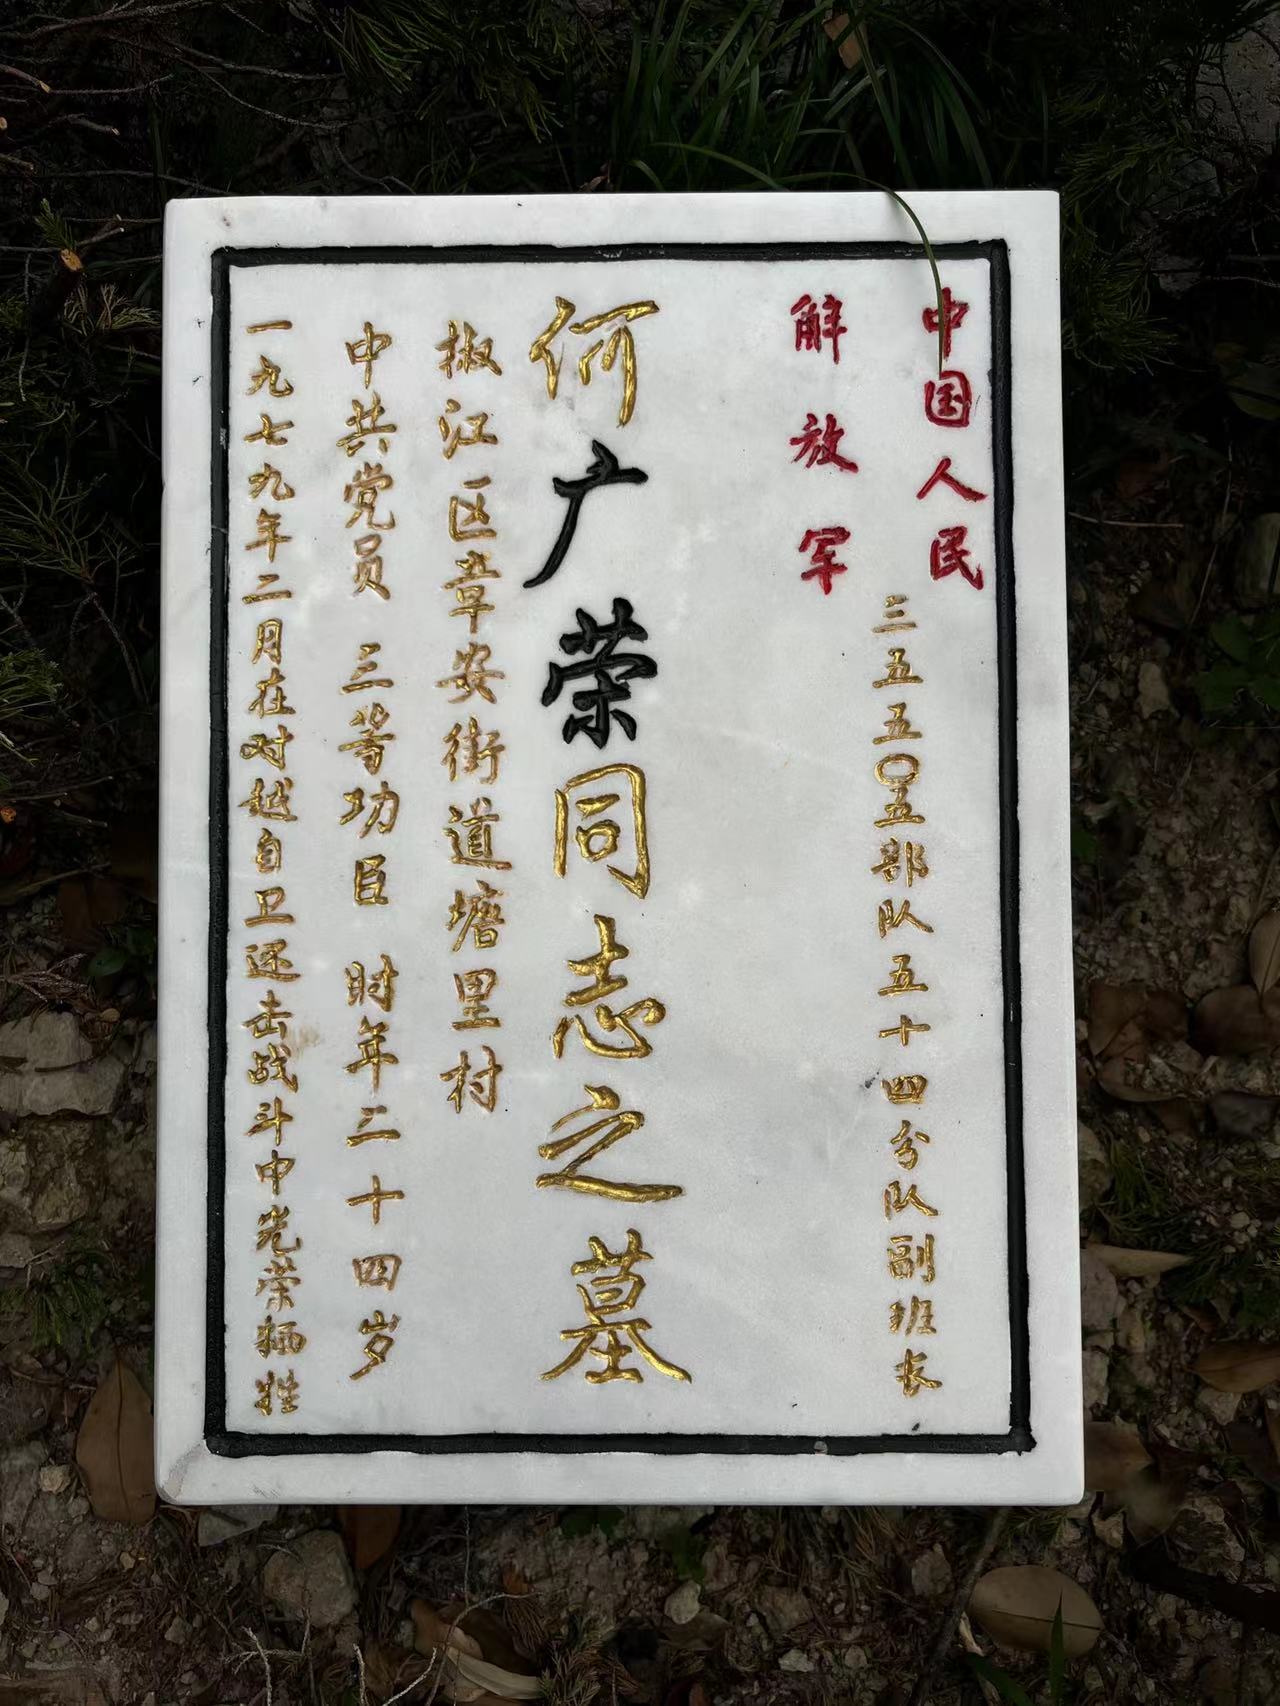 中国人民
解放军
三五五〇五部队五十四分队副班长
何广荣同志之墓
椒江区章安街道塘里村
中共党员 三等功臣 时年二十四岁
一九七九年二月在对越自卫还击战斗中光荣牺牲